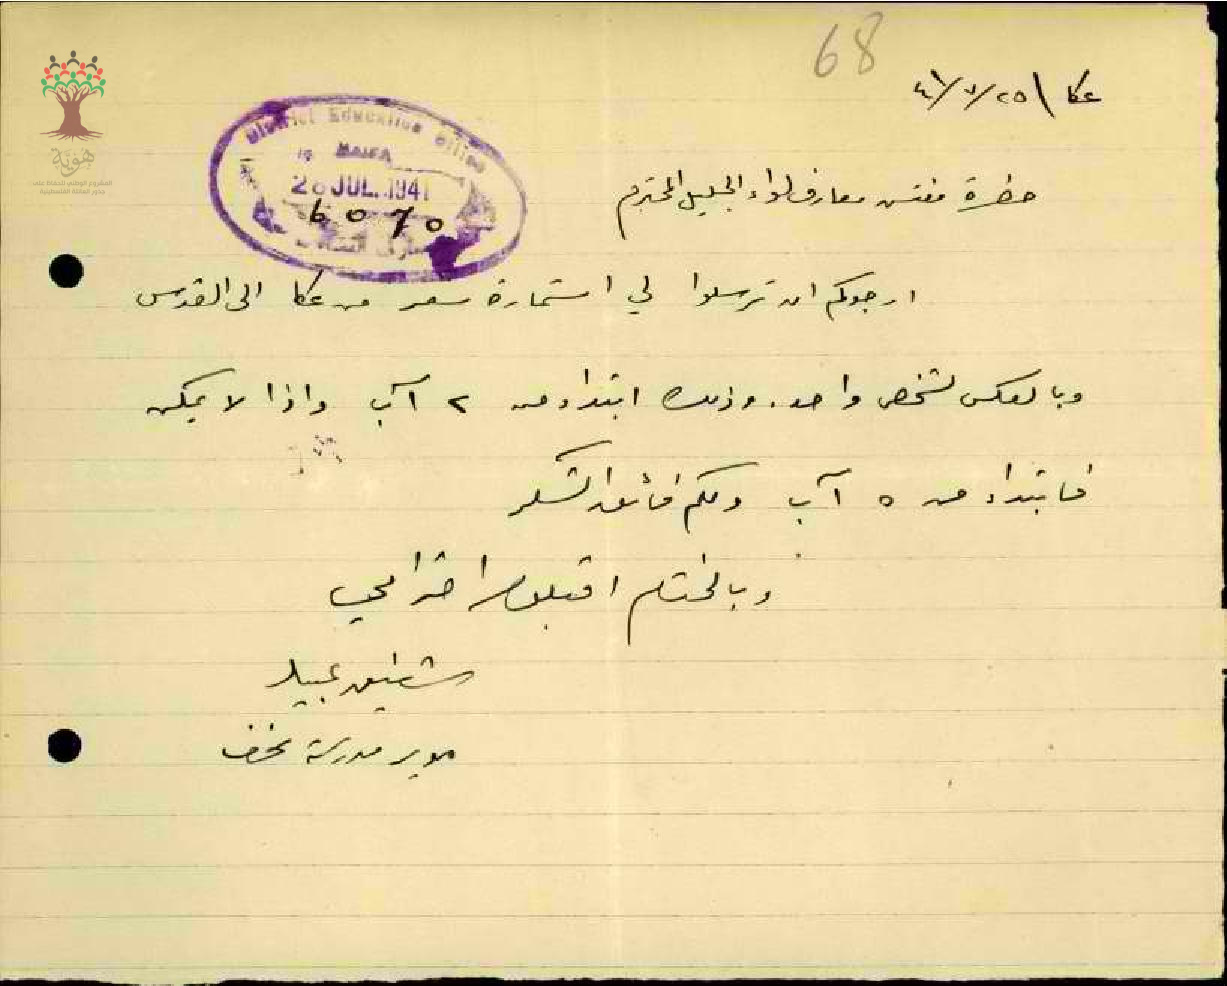 68
عكا ٢٥/٧/٤١
District Education Office
HAIFA
28 JUL. 1941
6070
هوية
حضرة مفتش معارف لواء الجليل المحترم
ارجوكم ان ترسلوا لي استمارة سفر من عكا الى القدس
وبالعكس لشخص واحد. وذلك ابتداء من ٢ آب واذا لا يمكن
فابتداء من ٥ آب ولكم فائق الشكر
وبالختام اقبلوا احترامي
شفيق عبيد
مدير مدرسة نحف